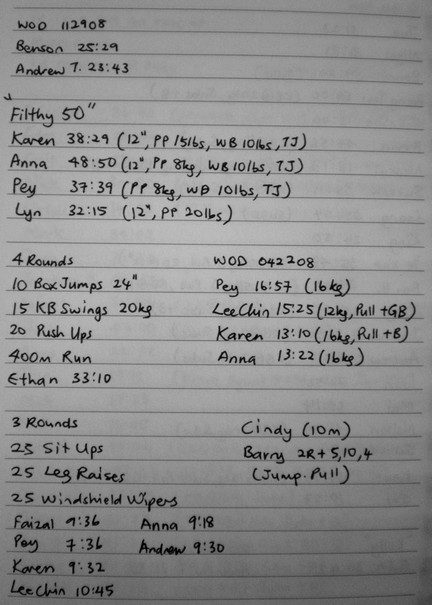 WOD 112908
Benson 25:29
Andrew T. 23:43
Filthy 50"
Karen 38:29 (12", PP 15lbs, WB 10lbs, TJ)
Anna 48:50 (12", PP 8kg, WB 10lbs, TJ)
Pey 37:39 (PP 8kg, WB 10lbs, TJ)
Lyn 32:15 (12", PP 20lbs)
4 Rounds
10 Box Jumps 24"
15 KB Swings 20kg
20 Push Ups
400m Run
Ethan 33:10
WOD 042208
Pey 16:57 (16kg)
LeeChin 15:25 (12kg, Pull +GB)
Karen 13:10 (16kg, Pull +B)
Anna 13:22 (16kg)
3 Rounds
25 Sit Ups
25 Leg Raises
25 Windshield Wipers
Faizal 9:36
Pey 7:36
Karen 9:32
LeeChin 10:45
Anna 9:18
Andrew 9:30
Cindy (10m)
Barry 2R + 5,10,4
(Jump. Pull)